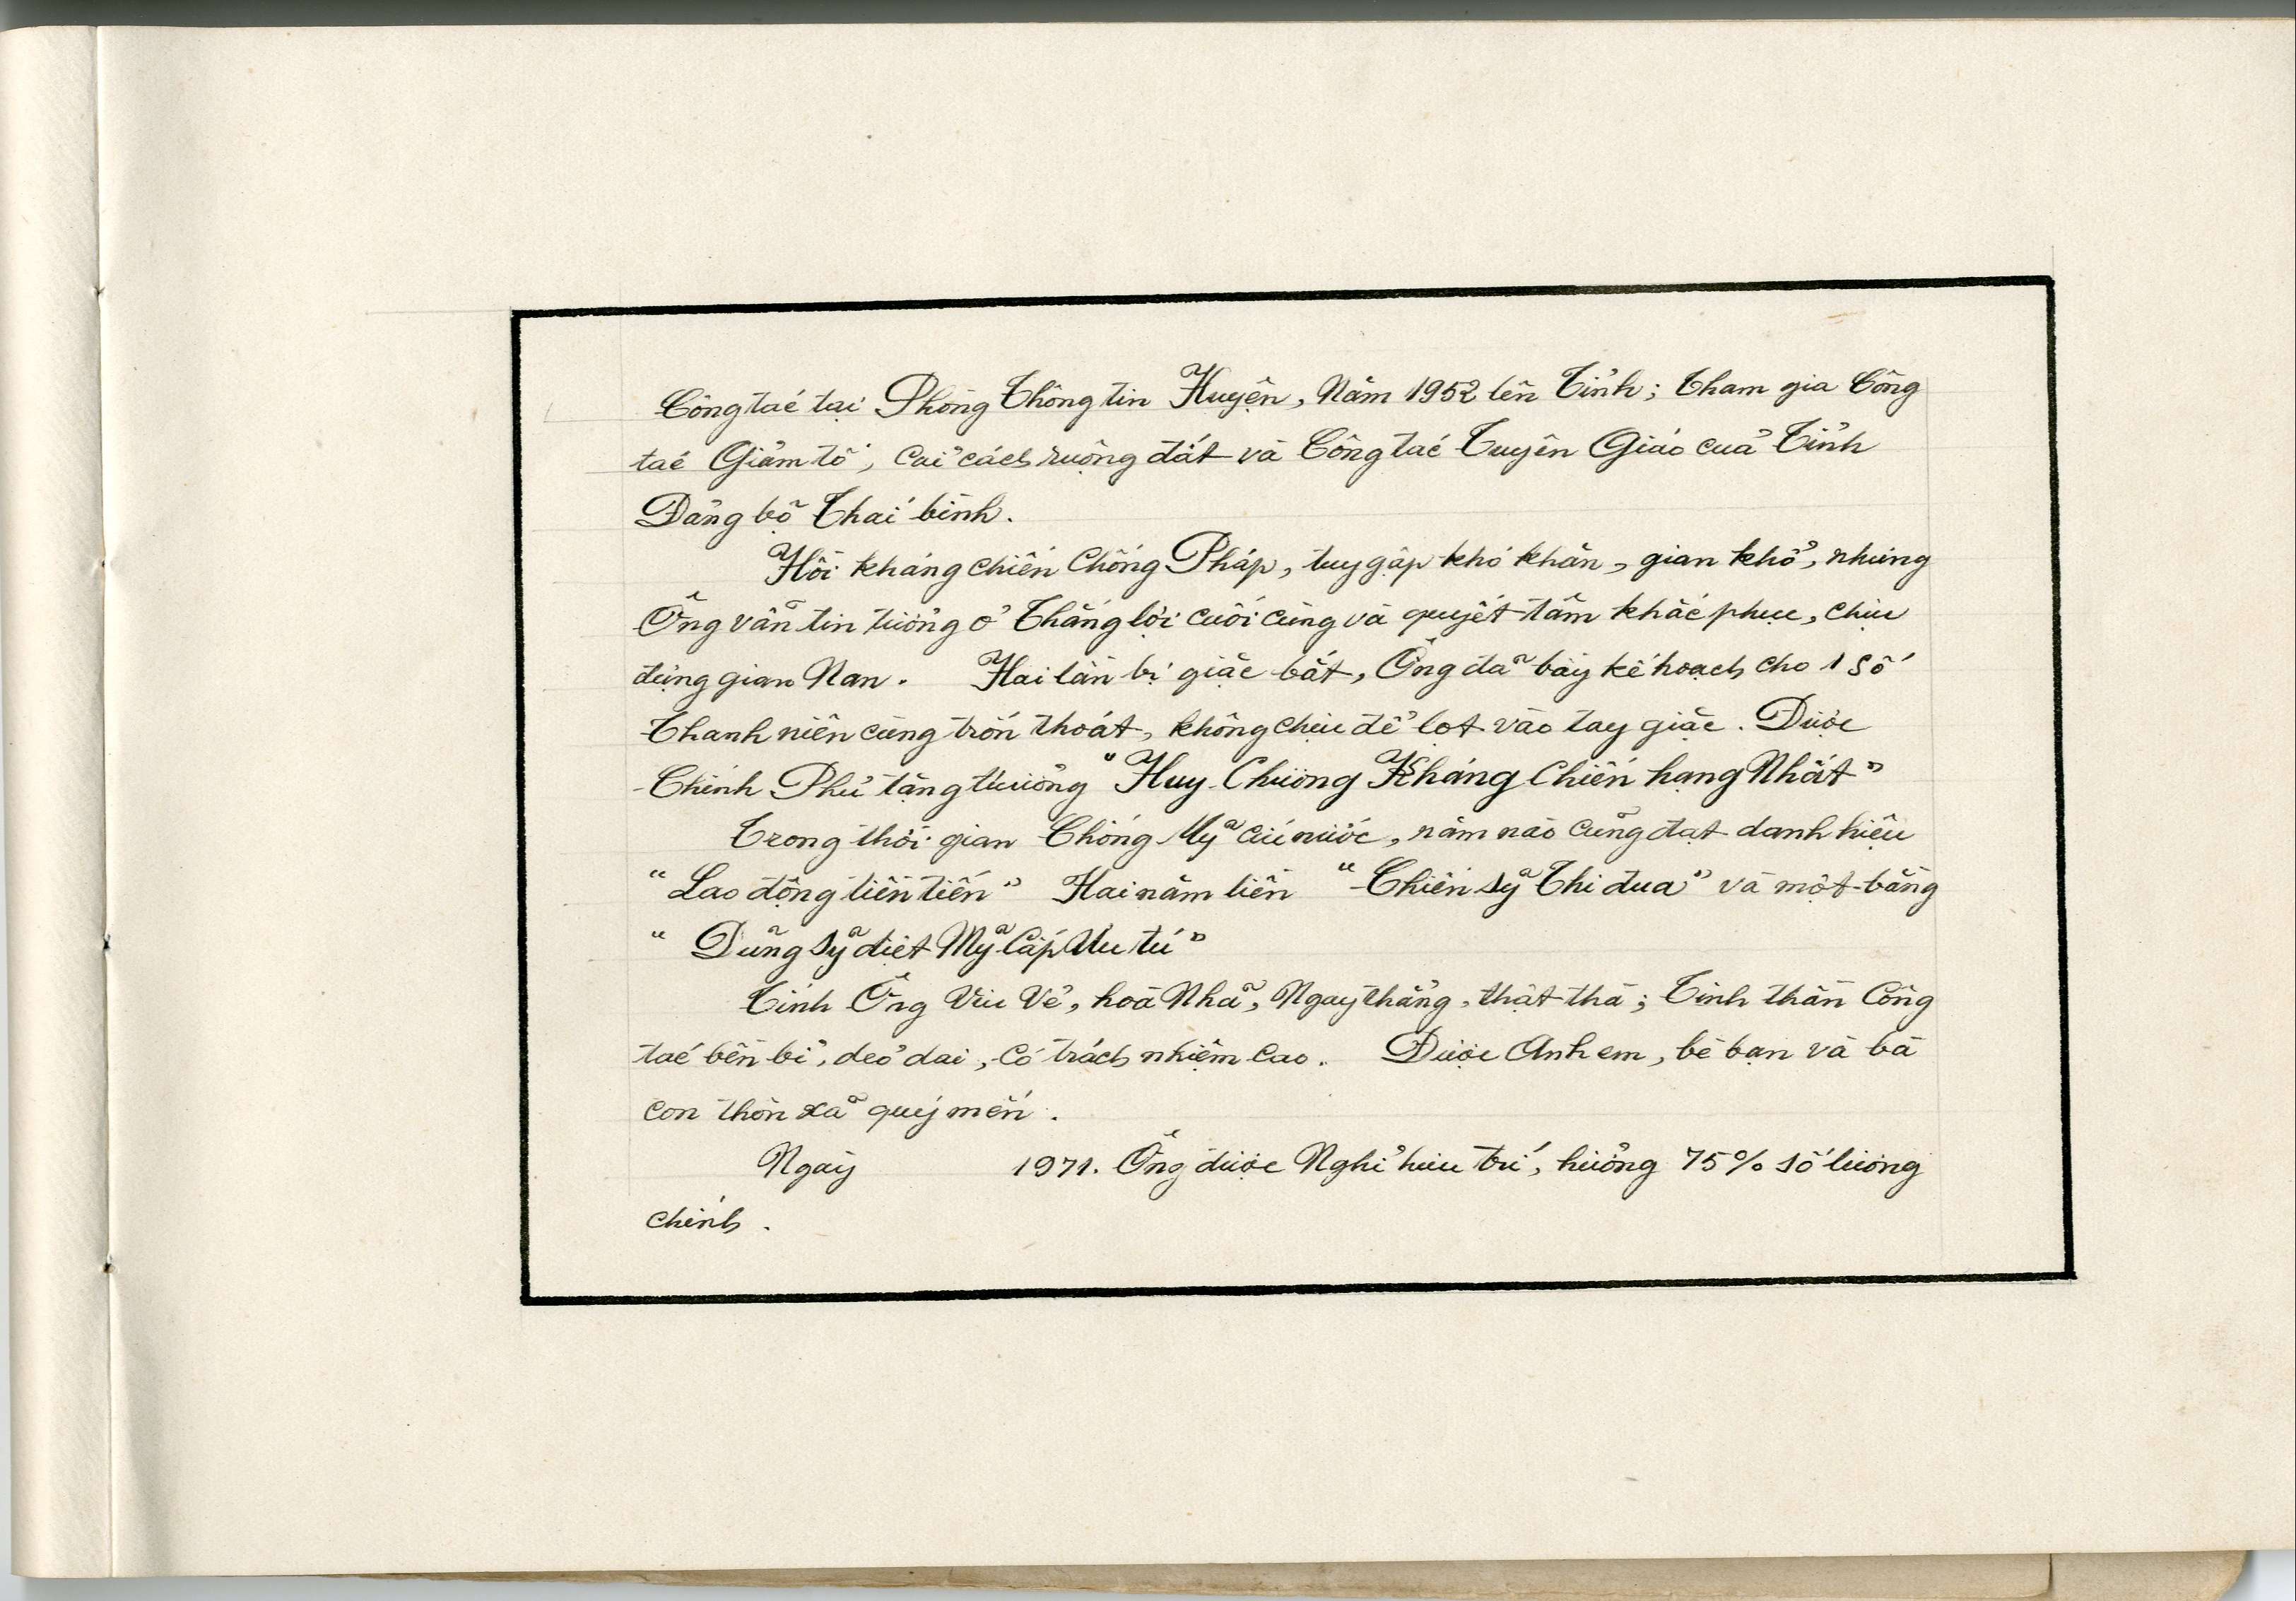 Công tác tại Phòng Thông tin Huyện, Năm 1952 lên Tỉnh; Tham gia Công
tác Giảm tô, Cải cách ruộng đất và Công tác Tuyên Giáo của Tỉnh
Đảng bộ Thái bình.
Hồi kháng chiến Chống Pháp, tuy gặp khó khăn, gian khổ, nhưng
Ông vẫn tin tưởng ở Thắng lợi cuối cùng và quyết tâm khắc phục, chịu
đựng gian Nan. Hai lần bị giặc bắt, Ông đã bày kế hoạch cho 1 số
Thanh niên cùng trốn thoát, không chịu để lọt vào tay giặc. Được
Chính Phủ tặng thưởng "Huy Chương Kháng Chiến hạng Nhất"
Trong thời gian Chống Mỹ cứu nước, năm nào cũng đạt danh hiệu
"Lao động tiên tiến" Hai năm liền "Chiến sỹ Thi đua" và một bằng
"Dũng sỹ diệt Mỹ Cấp Ưu tú"
Tính Ông Vui Vẻ, hoà Nhã, Ngay thẳng, thật thà; Tinh thần Công
tác bền bỉ, dẻo dai, Có trách nhiệm Cao. Được Anh em, bè bạn và bà
con thôn xã quý mến.
Ngày 1971. Ông được Nghỉ hưu trí, hưởng 75% số lương
chính.